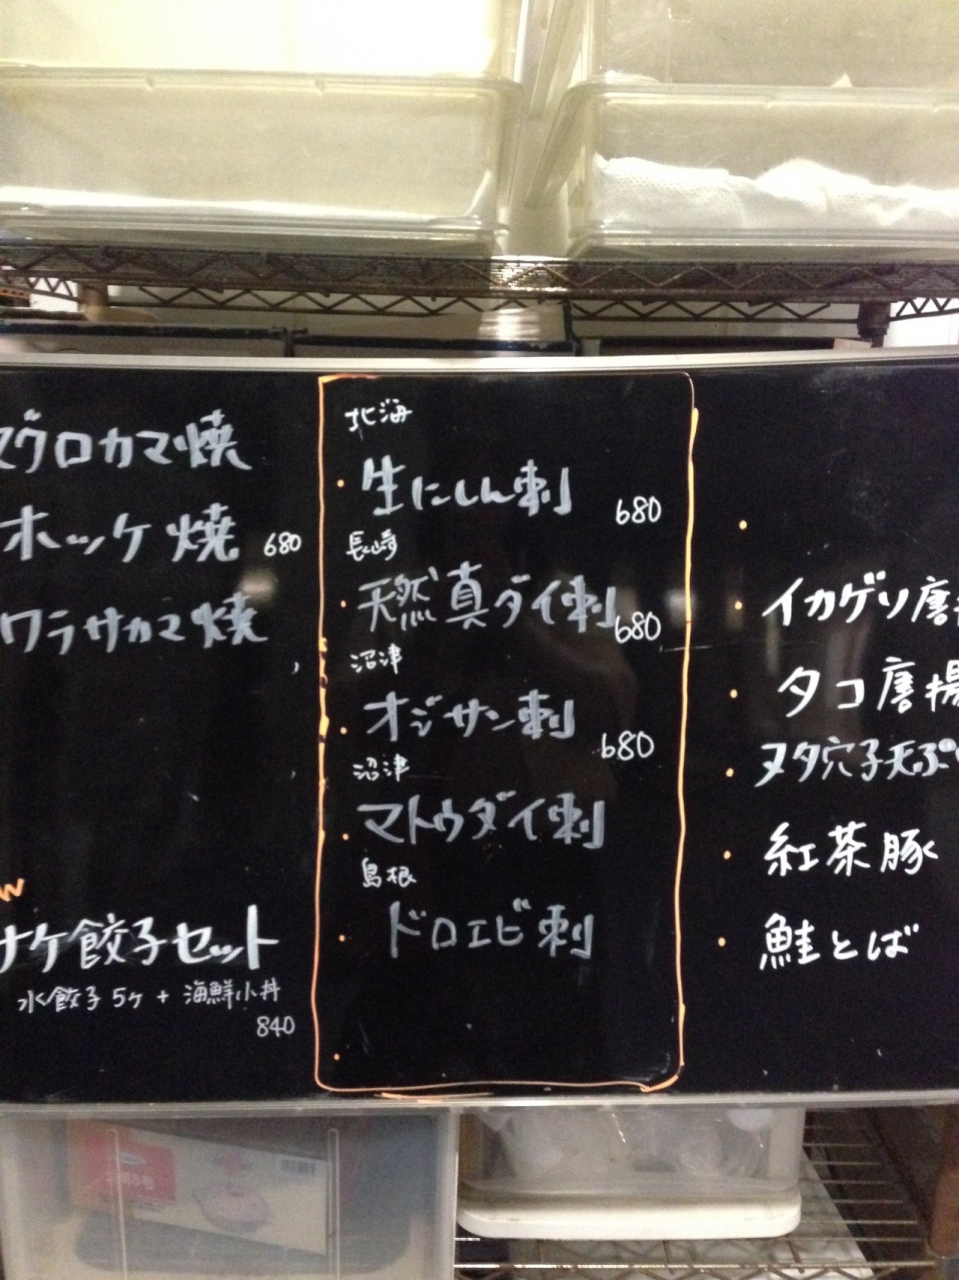 マグロカマ焼
ホッケ焼 680
ワラサカマ焼
ナケ餃子セット
水餃子5ヶ+海鮮小丼
840
北海
・生にしん刺
680
長崎
・天然真ダイ刺
680
沼津
・オジサン刺
680
沼津
・マトウダイ刺
島根
・ドロエビ刺
・
・
・イカゲソ唐
・タコ唐揚
・ヌタ穴子天ぷ
・紅茶豚
・鮭とば